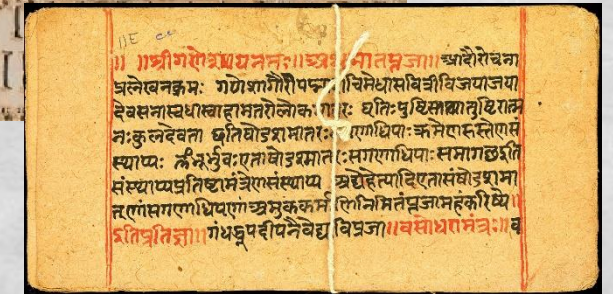 ॥ ॥श्रीगणेशायनमः॥ अथ मातृपूजा॥ आदौरोचना
प्रलेखनक्रमः गणेशगौरीपद्मा चिमेधासवित्रीविजयाजया
देवसेनास्वधास्वाहामातरोलोक तरः धृतिःपुष्टिस्तथातुष्टिरात्म
नःकुलदेवता इतिषोडशमातरः गणाधिपाः क्रमेण
स्थाप्यः ॐभूर्भुवःएताषोडशमातरःसगणाधिपाःसमागछइति
संस्थाप्यप्रतिष्टामंत्रेणसंस्थाप्य अद्येहेत्यादिएतासंषोडशमा
तृणांसगणाधिपणां अमुककर्म निमितंपूजामहंकरिष्ये॥
इतिप्रतिज्ञा॥ गंधधूपदीपनैवेद्य विपूजा॥ मंत्रः॥ व